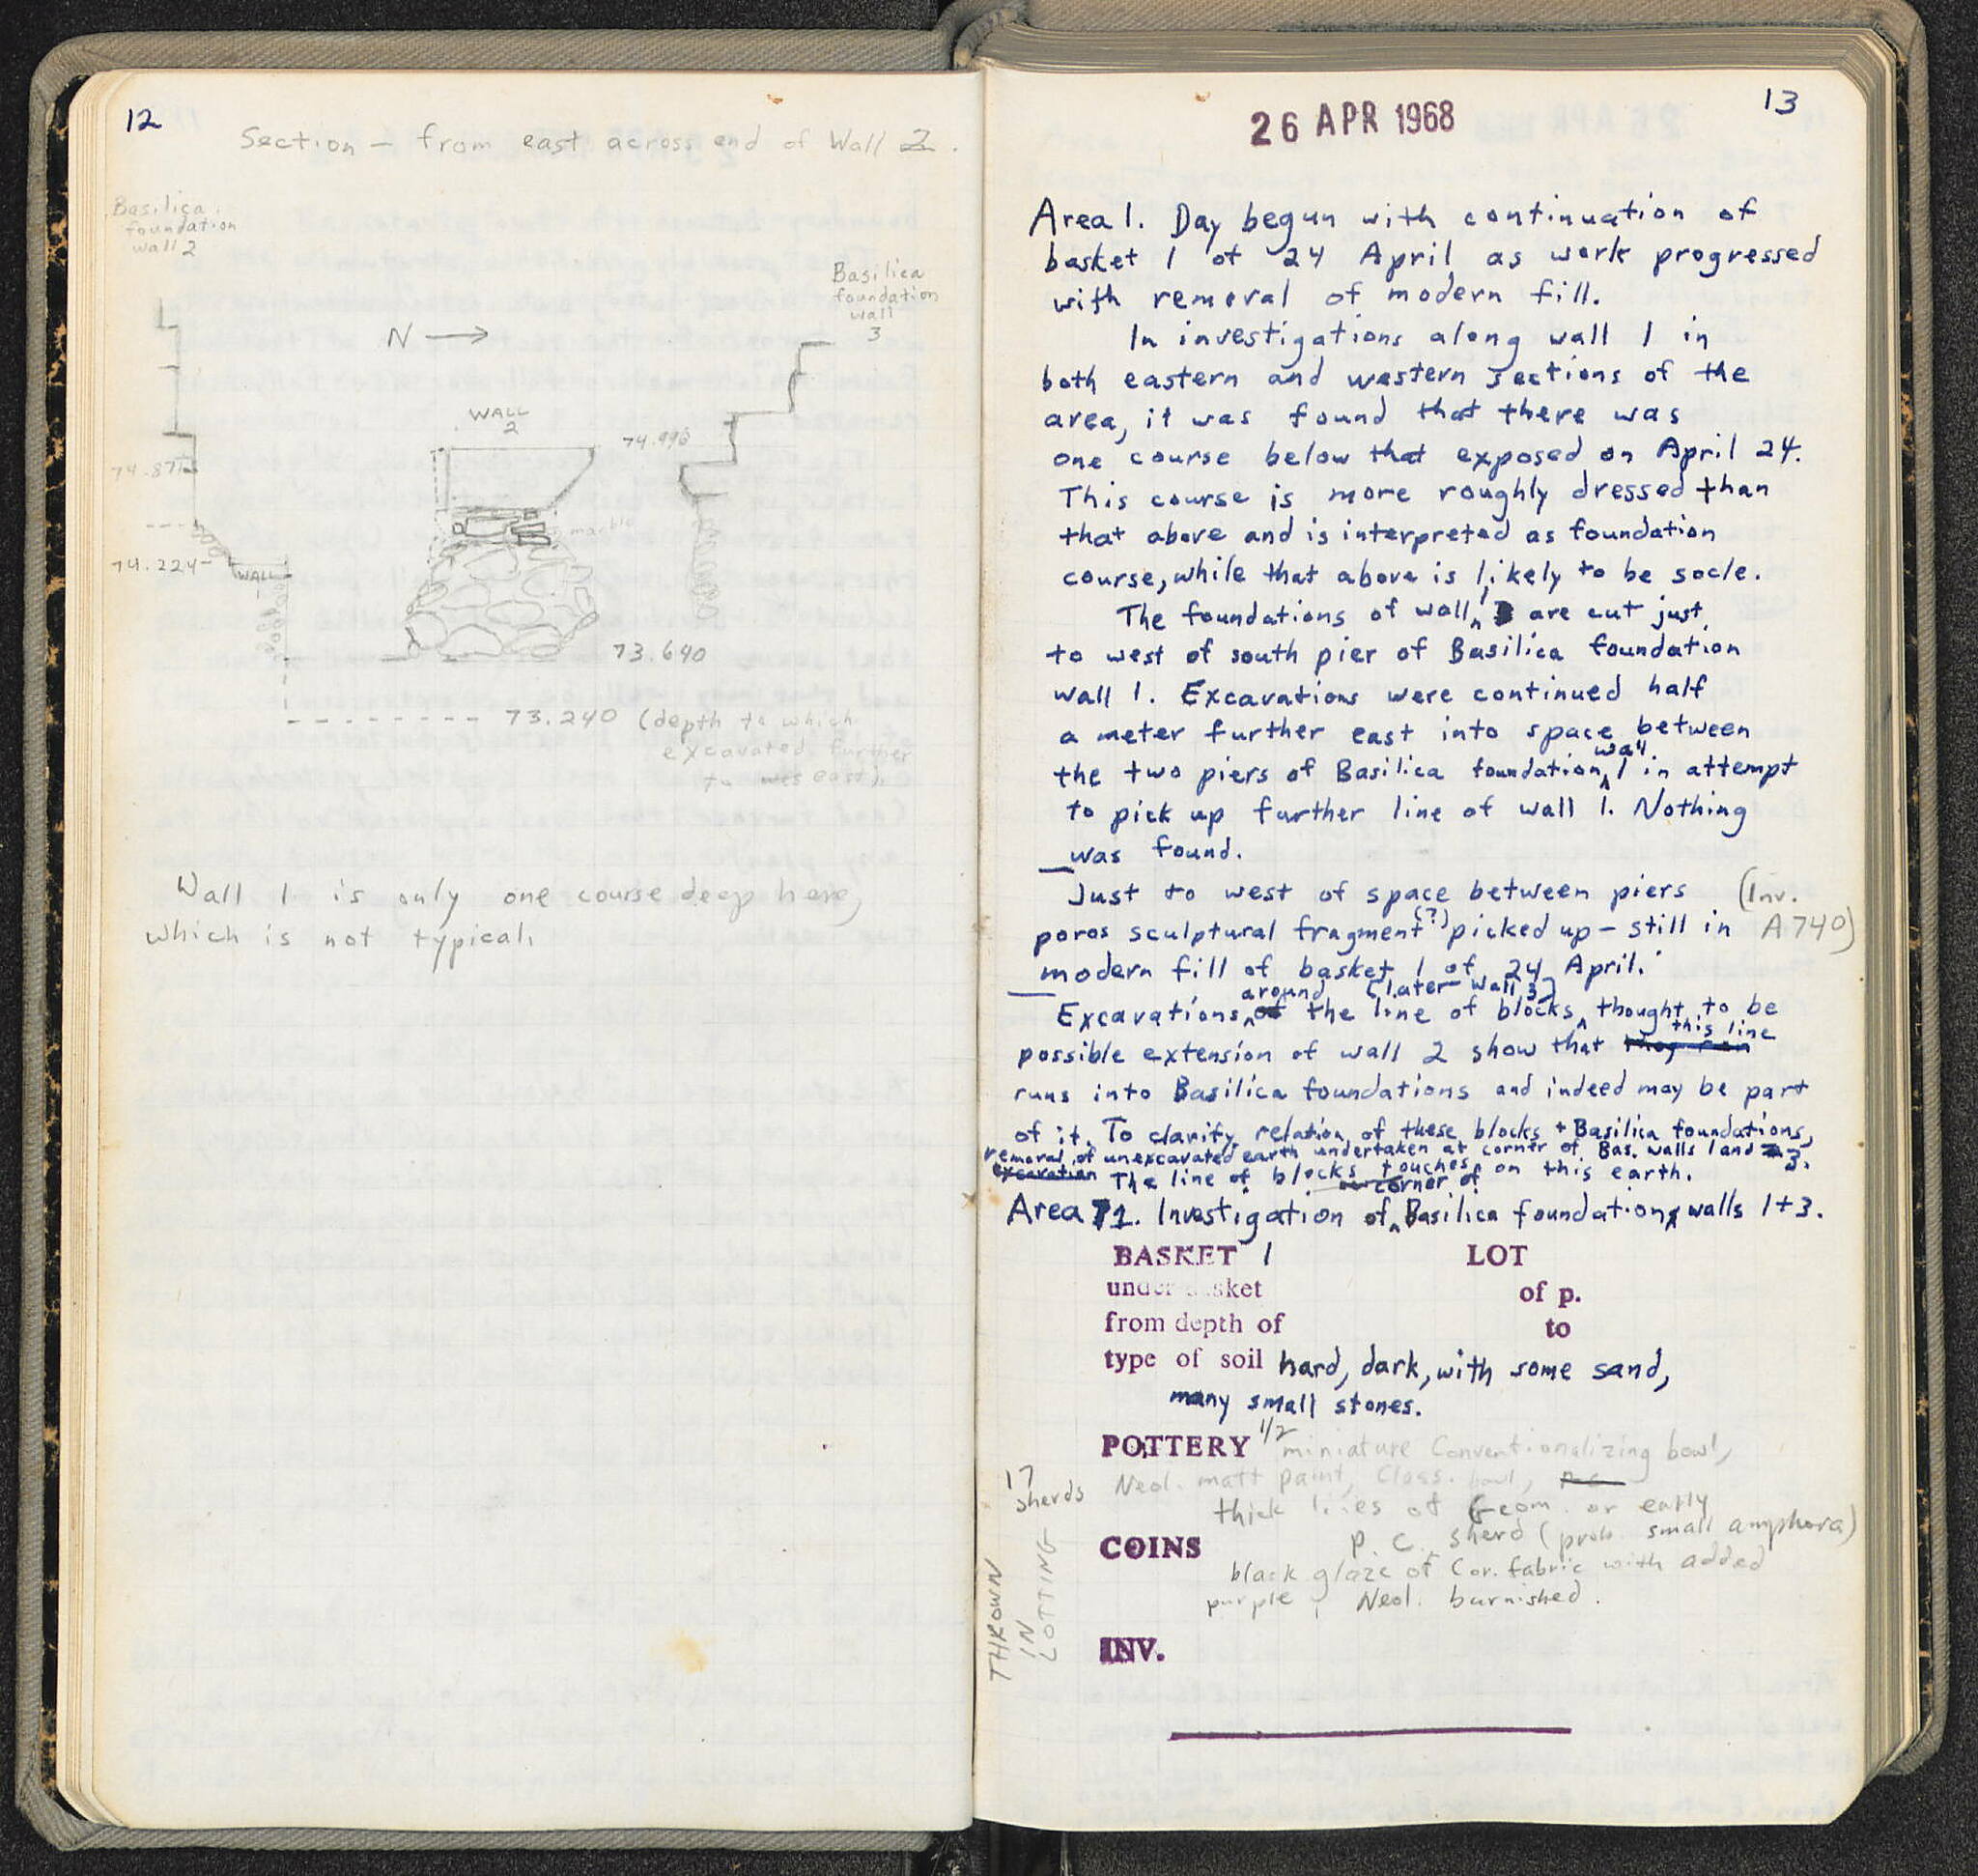 12
Section — from east across end of Wall 2.
Basilica
foundation
wall 2
Basilica
foundation
wall
3
N
WALL
2
74.996
74.871
marble
74.224
WALL
73.640
73.240 (depth to which
excavated further
to east).
Wall 1 is only one course deep here,
which is not typical.
13
26 APR 1968
Area 1. Day begun with continuation of
basket 1 of 24 April as work progressed
with removal of modern fill.
In investigations along wall 1 in
both eastern and western sections of the
area, it was found that there was
one course below that exposed on April 24.
This course is more roughly dressed than
that above and is interpreted as foundation
course, while that above is likely to be socle.
The foundations of wall 1 are cut just
to west of south pier of Basilica foundation
wall 1. Excavations were continued half
a meter further east into space between
the two piers of Basilica foundation wall 1 in attempt
to pick up further line of wall 1. Nothing
was found.
Just to west of space between piers (Inv.
poros sculptural fragment (?) picked up — still in A 740)
modern fill of basket 1 of 24 April.
Excavations around the line of blocks [later wall 3] thought to be
possible extension of wall 2 show that they run this line
runs into Basilica foundations and indeed may be part
of it. To clarify relation of these blocks + Basilica foundations,
removal of unexcavated earth undertaken at corner of Bas. walls 1 and 3.
excavation The line of blocks touches on this earth.
Area 71. Investigation of corner of Basilica foundation walls 1+3.
BASKET 1 LOT
under basket of p.
from depth of to
type of soil hard, dark, with some sand,
many small stones.
POTTERY 1/2 miniature Conventionalizing bowl,
17 sherds
Neol. matt paint, Class. bowl, p.c.
thick lines of Geom. or early
p. c. sherd (prob. small amphora)
COINS
black glaze of Cor. fabric with added
purple, Neol. burnished.
THROWN
IN
LOTTING
INV.